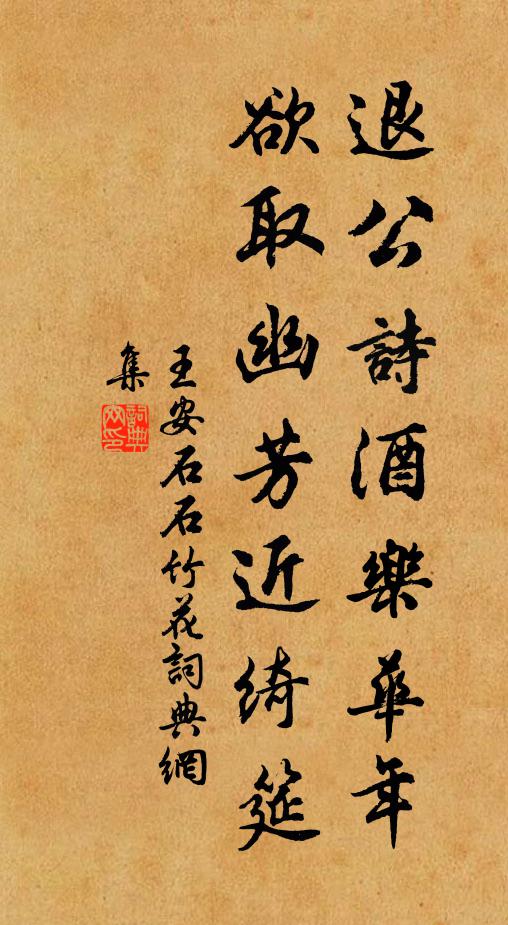 退公詩酒樂華年
欲取幽芳近綺筵
王安石石竹花詞典網
集
詞典網印